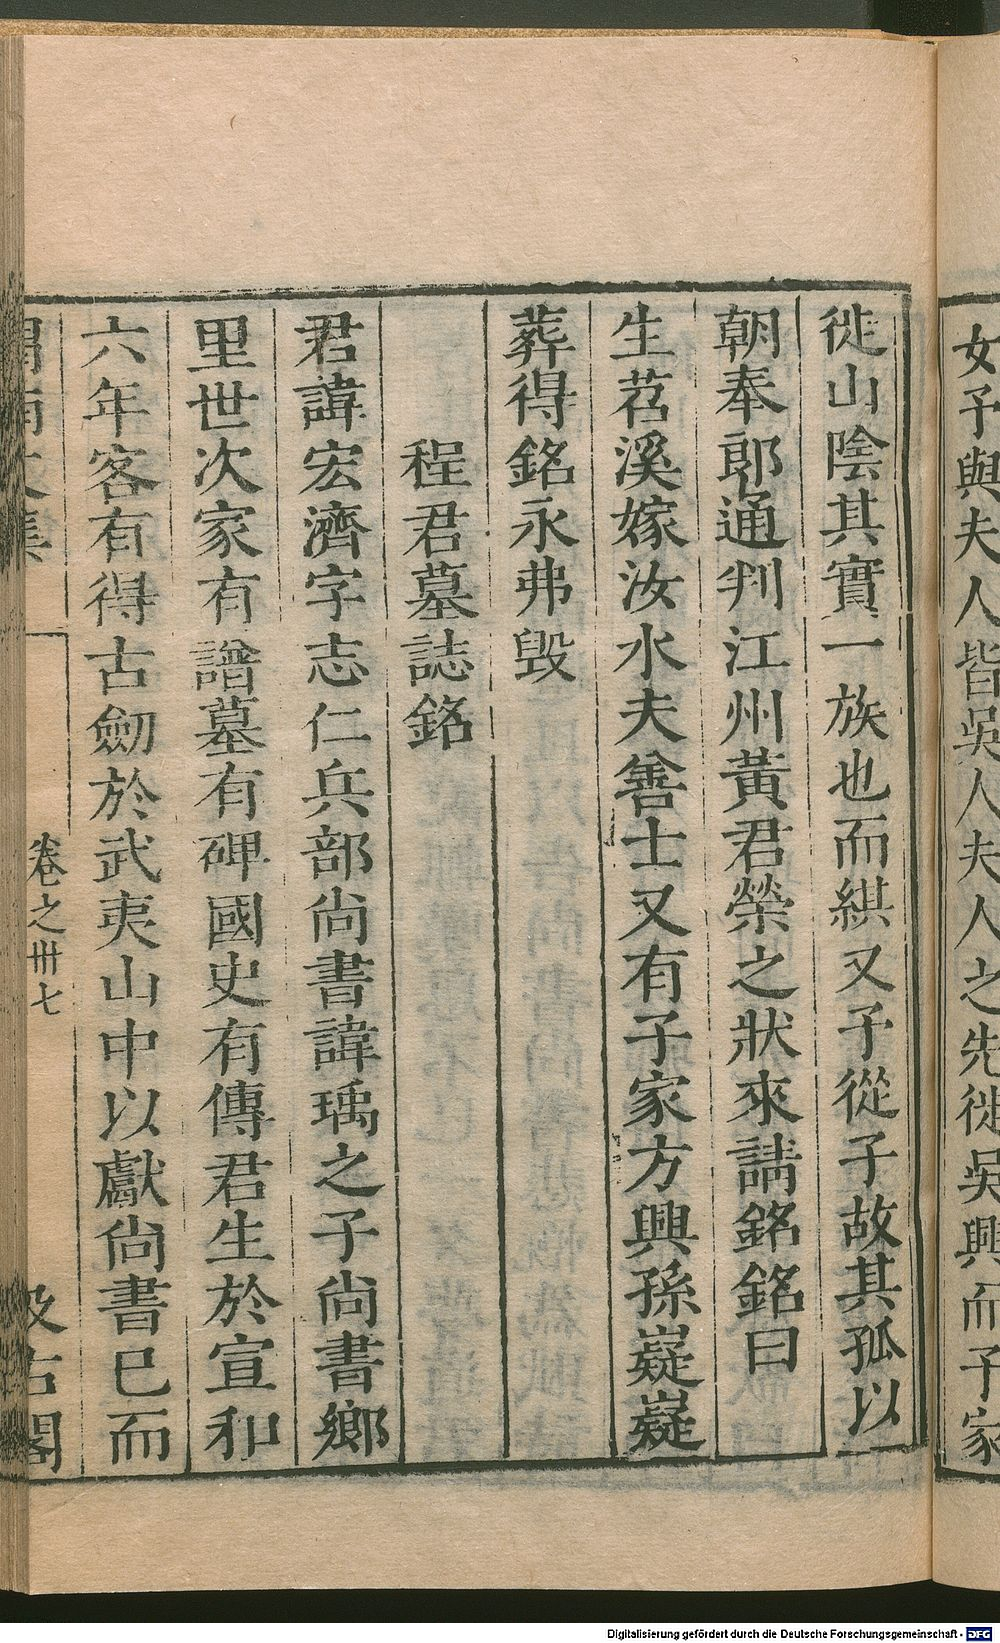 女子與夫人皆吳人夫人之先徙吳興而子家
徙山陰其實一族也而綨又予從子故其孤以
朝奉郎通判江州黃君榮之狀來請銘銘曰
生苕溪嫁汝水夫善士又有子家方興孫嶷嶷
葬得銘永弗毁
程君墓誌銘
君諱宏濟字志仁兵部尚書諱瑀之子尚書鄉
里世次家有譜墓有碑國史有傳君生於宣和
六年客有得古劒於武夷山中以獻尚書已而
渭南文集
卷之卅七
汲古閣
Digitalisierung gefördert durch die Deutsche Forschungsgemeinschaft - DFG